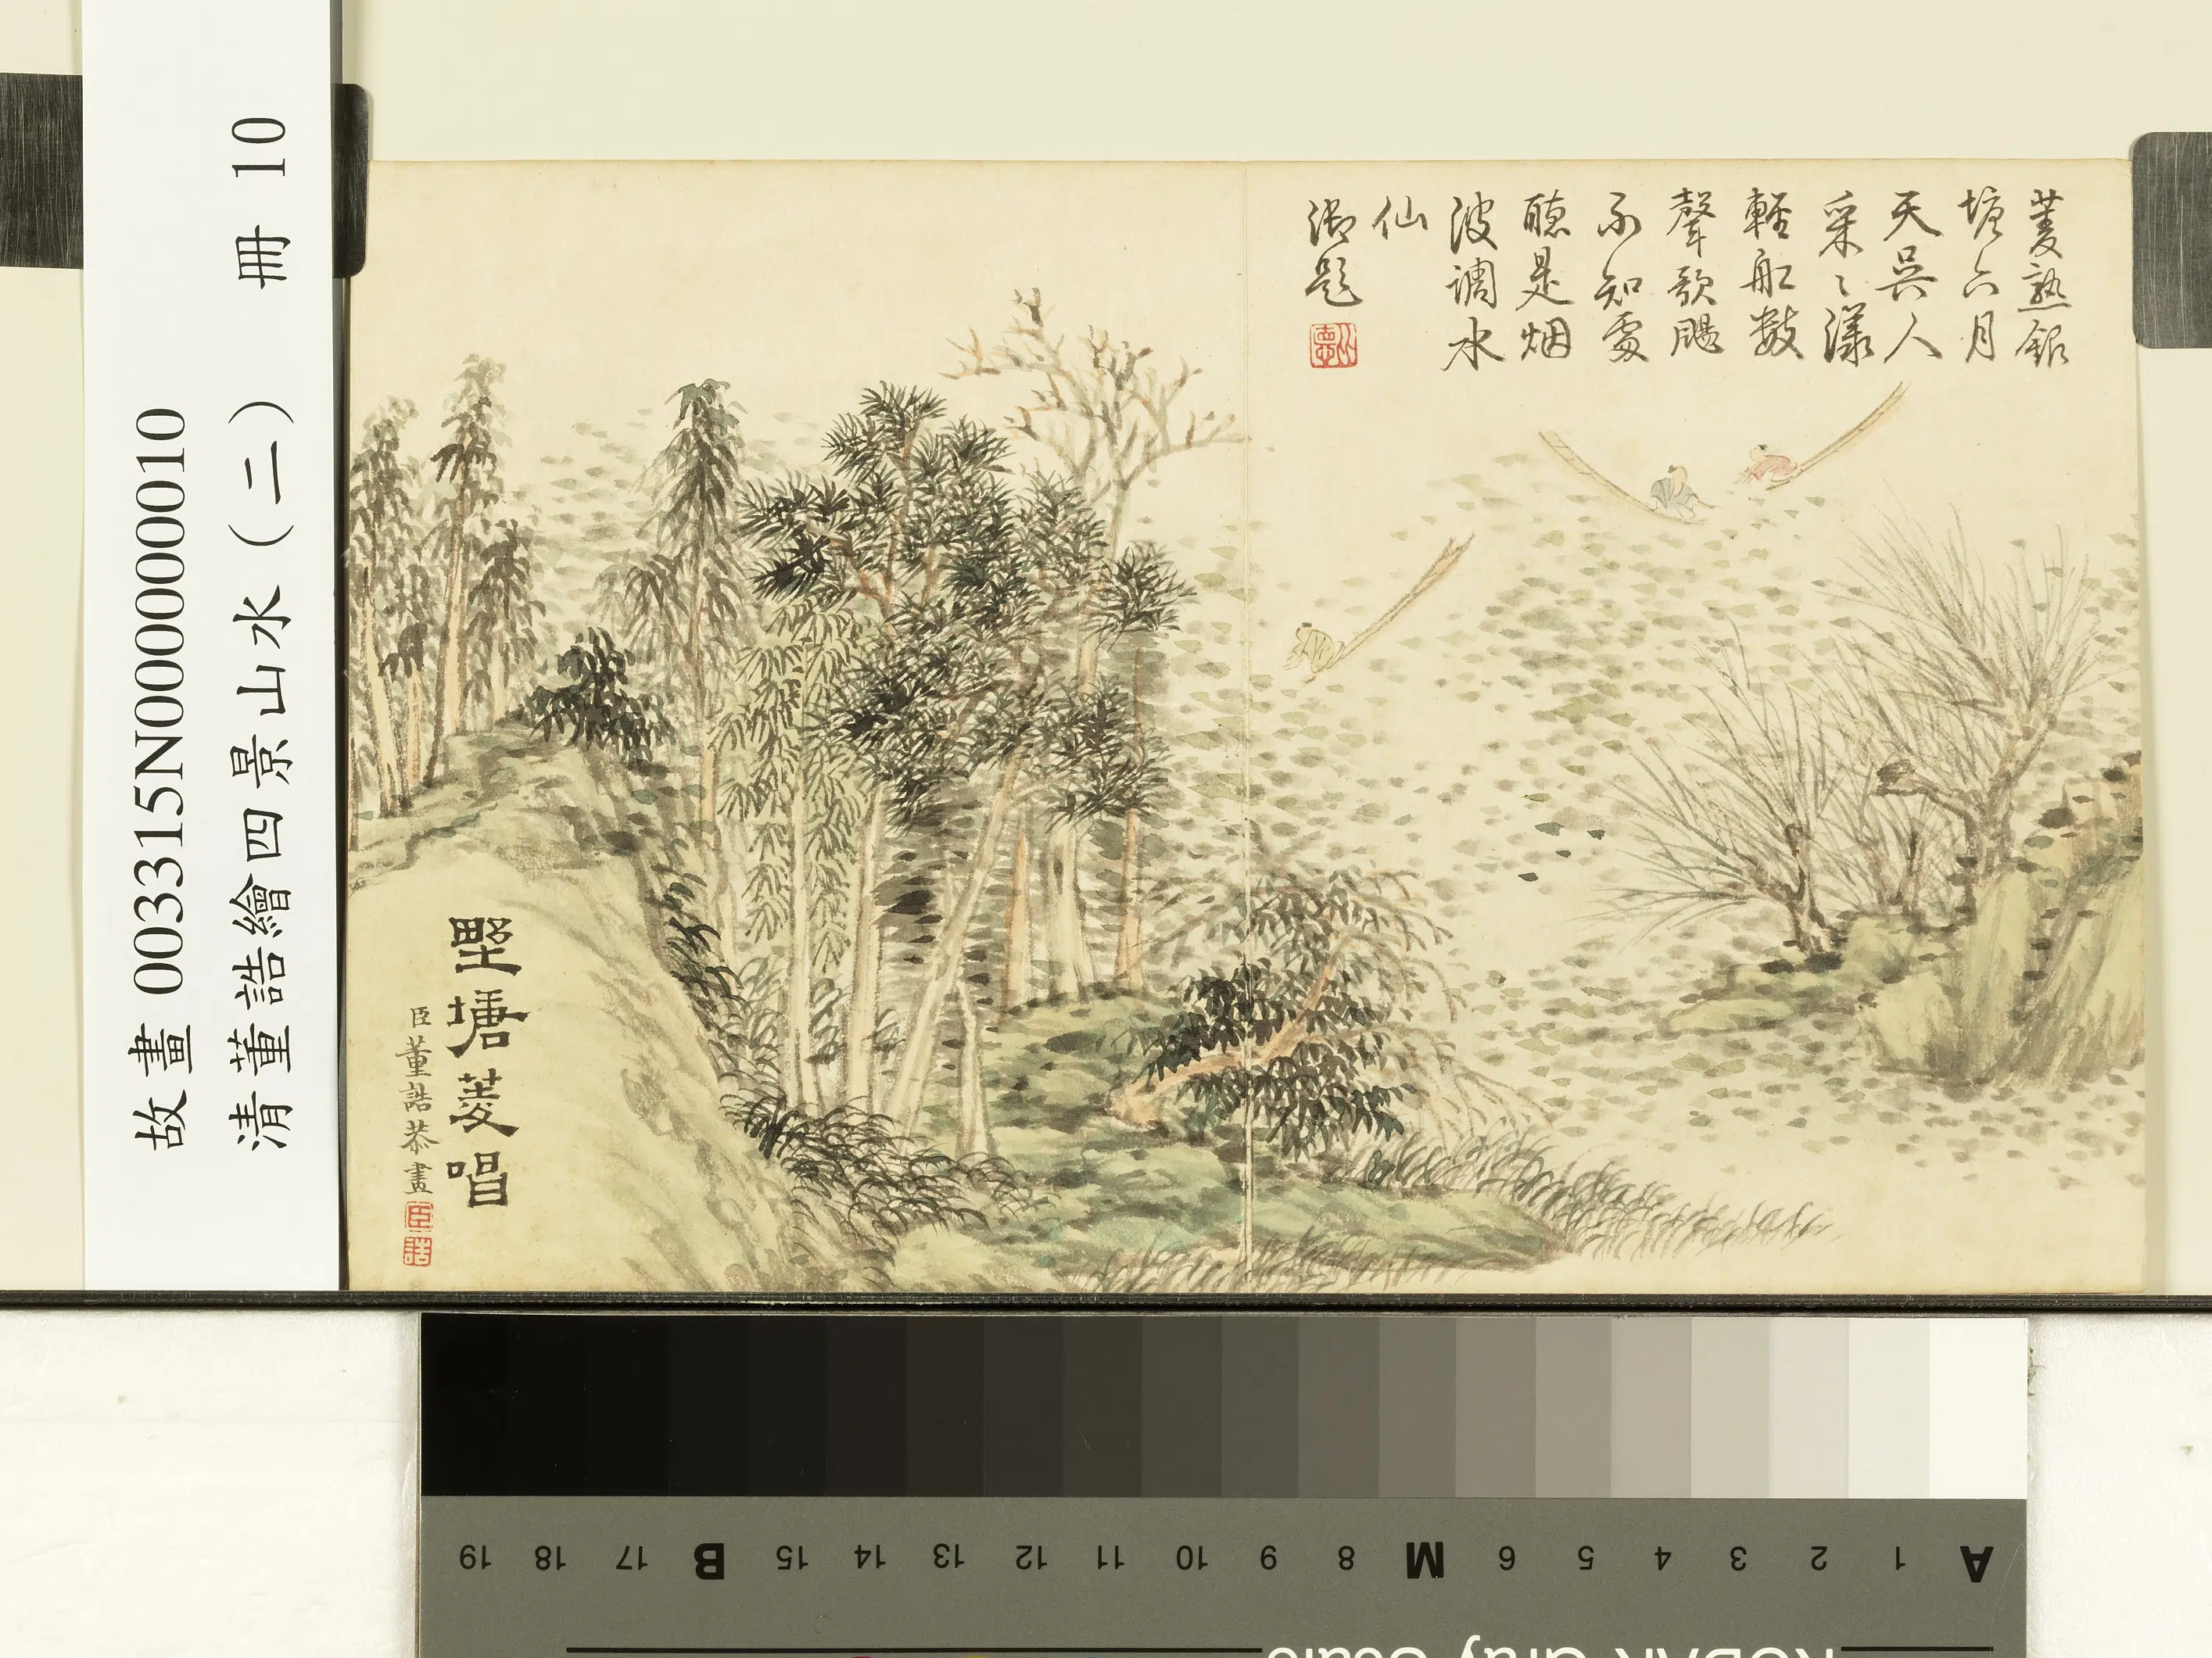 故畫 003315N000000010
清董誥繪四景山水（二） 冊 10
菱熟銀
塘六月
天吳人
采〻漾
輕舡數
聲歌颺
不知處
聽是烟
波調水
仙
御題
比德
墅塘菱唱
臣董誥恭畫
臣
誥
A 1 2 3 4 5 6 M 8 9 10 11 12 13 14 15 B 17 18 19
KODAK Gray Scale